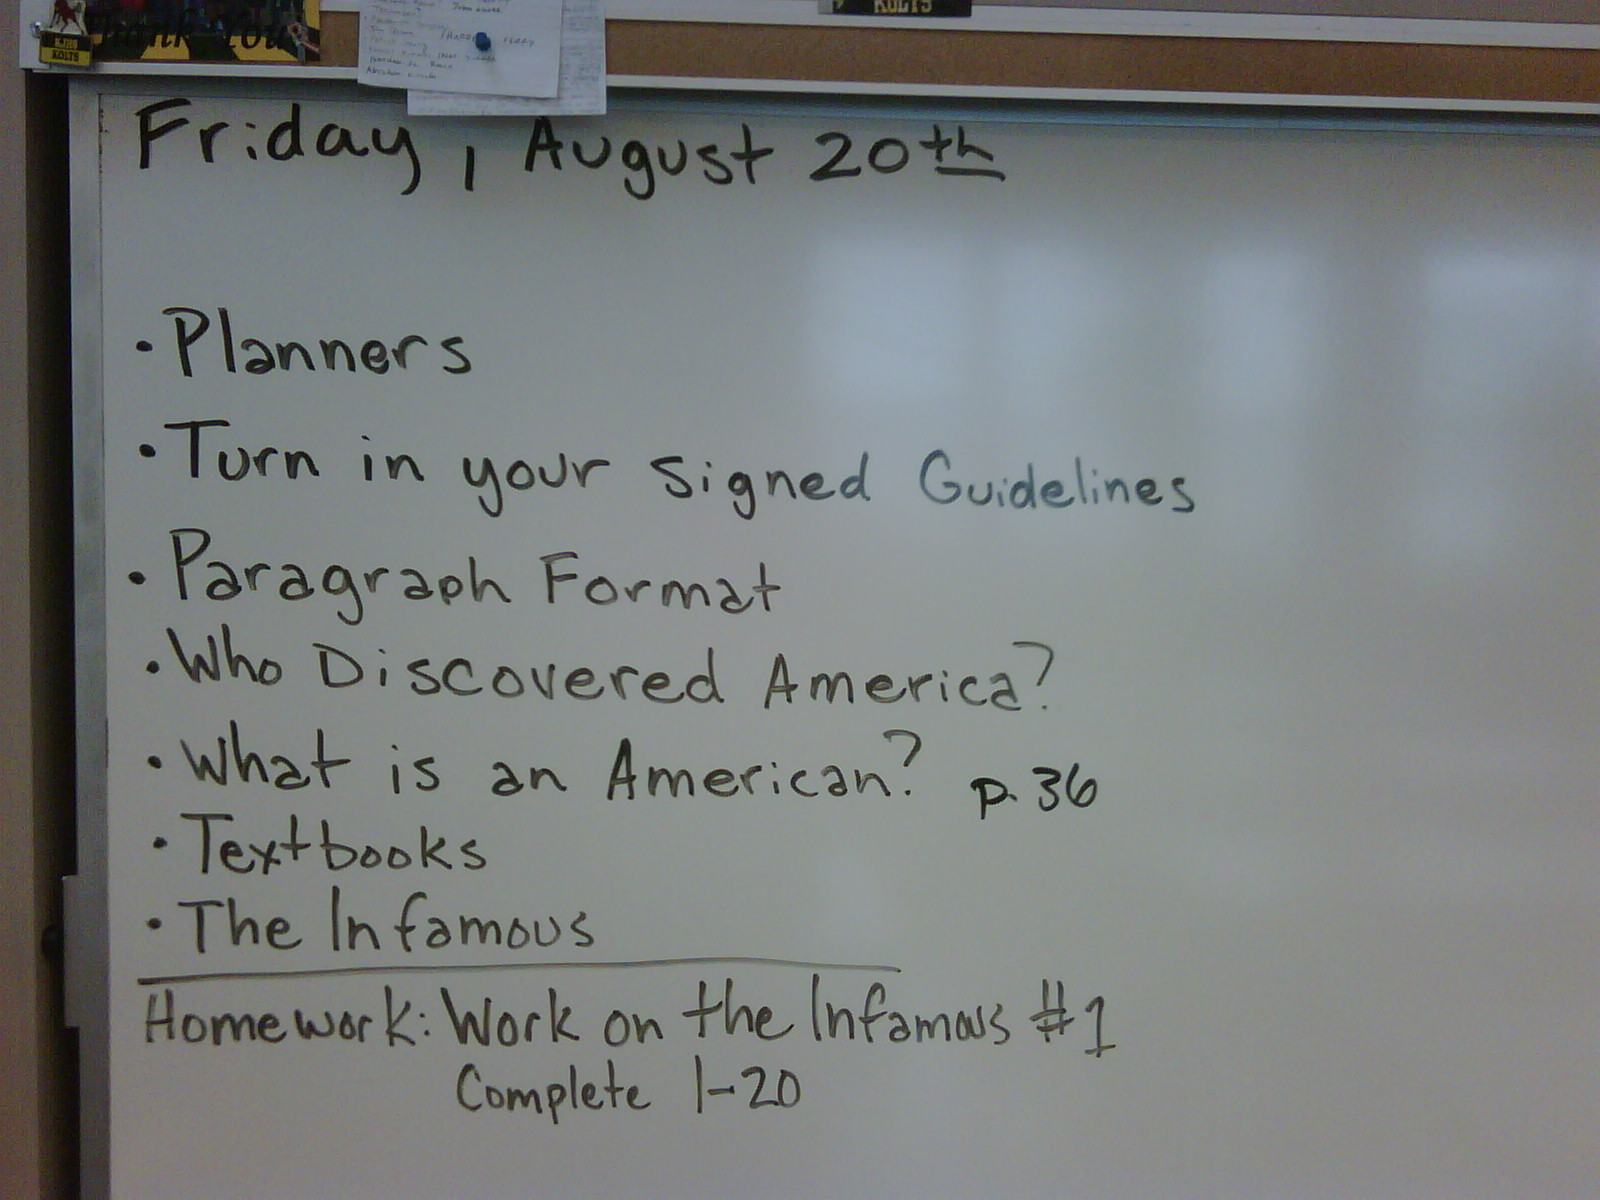 KOLTS
Thank You
KOLTS
Friday, August 20th
• Planners
• Turn in your signed Guidelines
• Paragraph Format
• Who Discovered America?
• What is an American? p. 36
• Textbooks
• The Infamous
Homework: Work on the Infamous #1
Complete 1-20